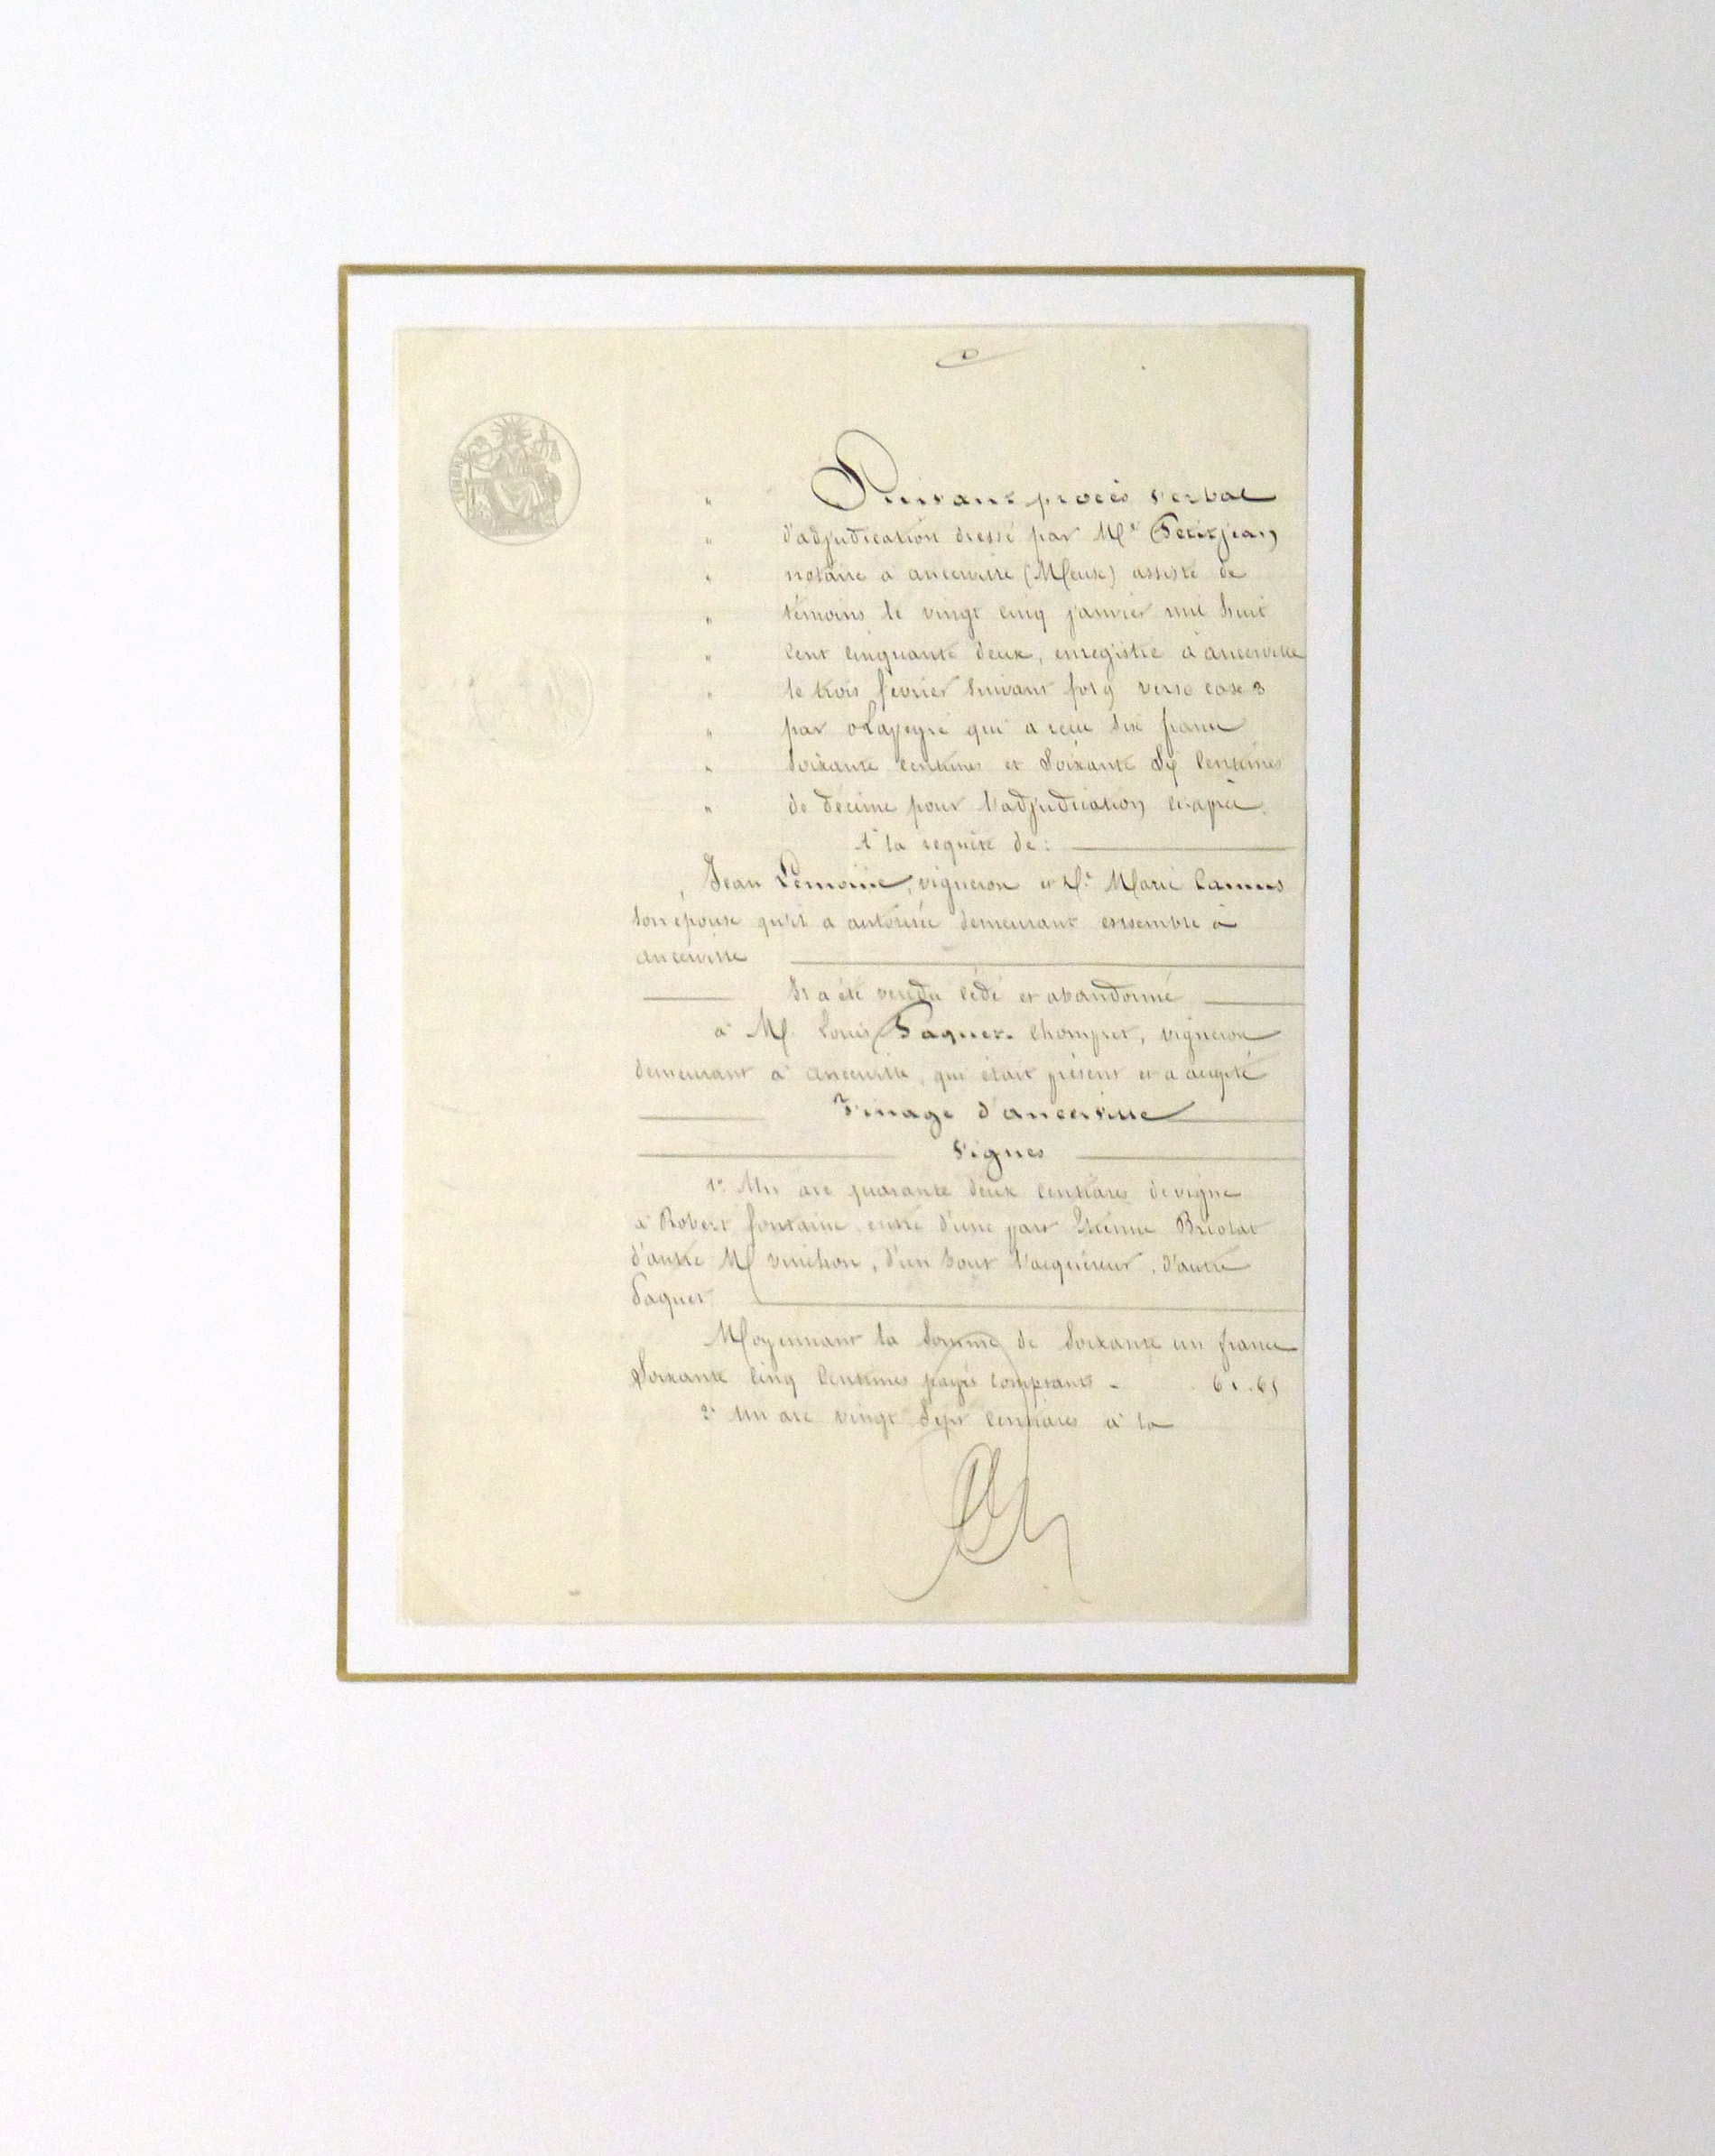 Suivant procès verbal
" d'adjudication dressé par Me Petitjean
" notaire à ancerville (Meuse) assisté de
" témoins le vingt cinq janvier mil huit
" cent cinquante deux, enregistré à ancerville
" le trois février suivant fol 9 verso case 3
" par Lapeyre qui a reçu six francs
" soixante centimes et soixante six centimes
" de décime pour l'adjudication ci-après.
A la requête de :
Jean Lemoine, vigneron et De Marie Camus
son épouse qu'il a autorisée demeurant ensemble à
ancerville
Il a été vendu cédé et abandonné
à M. Louis Paquet-Chompret, vigneron
demeurant à ancerville, qui était présent et a accepté
Finage d'ancerville
Vignes
1° Un are quarante deux centiares de vigne
à Robert fontaine, entre d'une part Etienne Briolat
d'autre M vinchon, d'un bout l'acquéreur, d'autre
Paquet
Moyennant la somme de soixante un francs
soixante cinq centimes payés comptants - 61.65
2° Un are vingt sept centiares à la